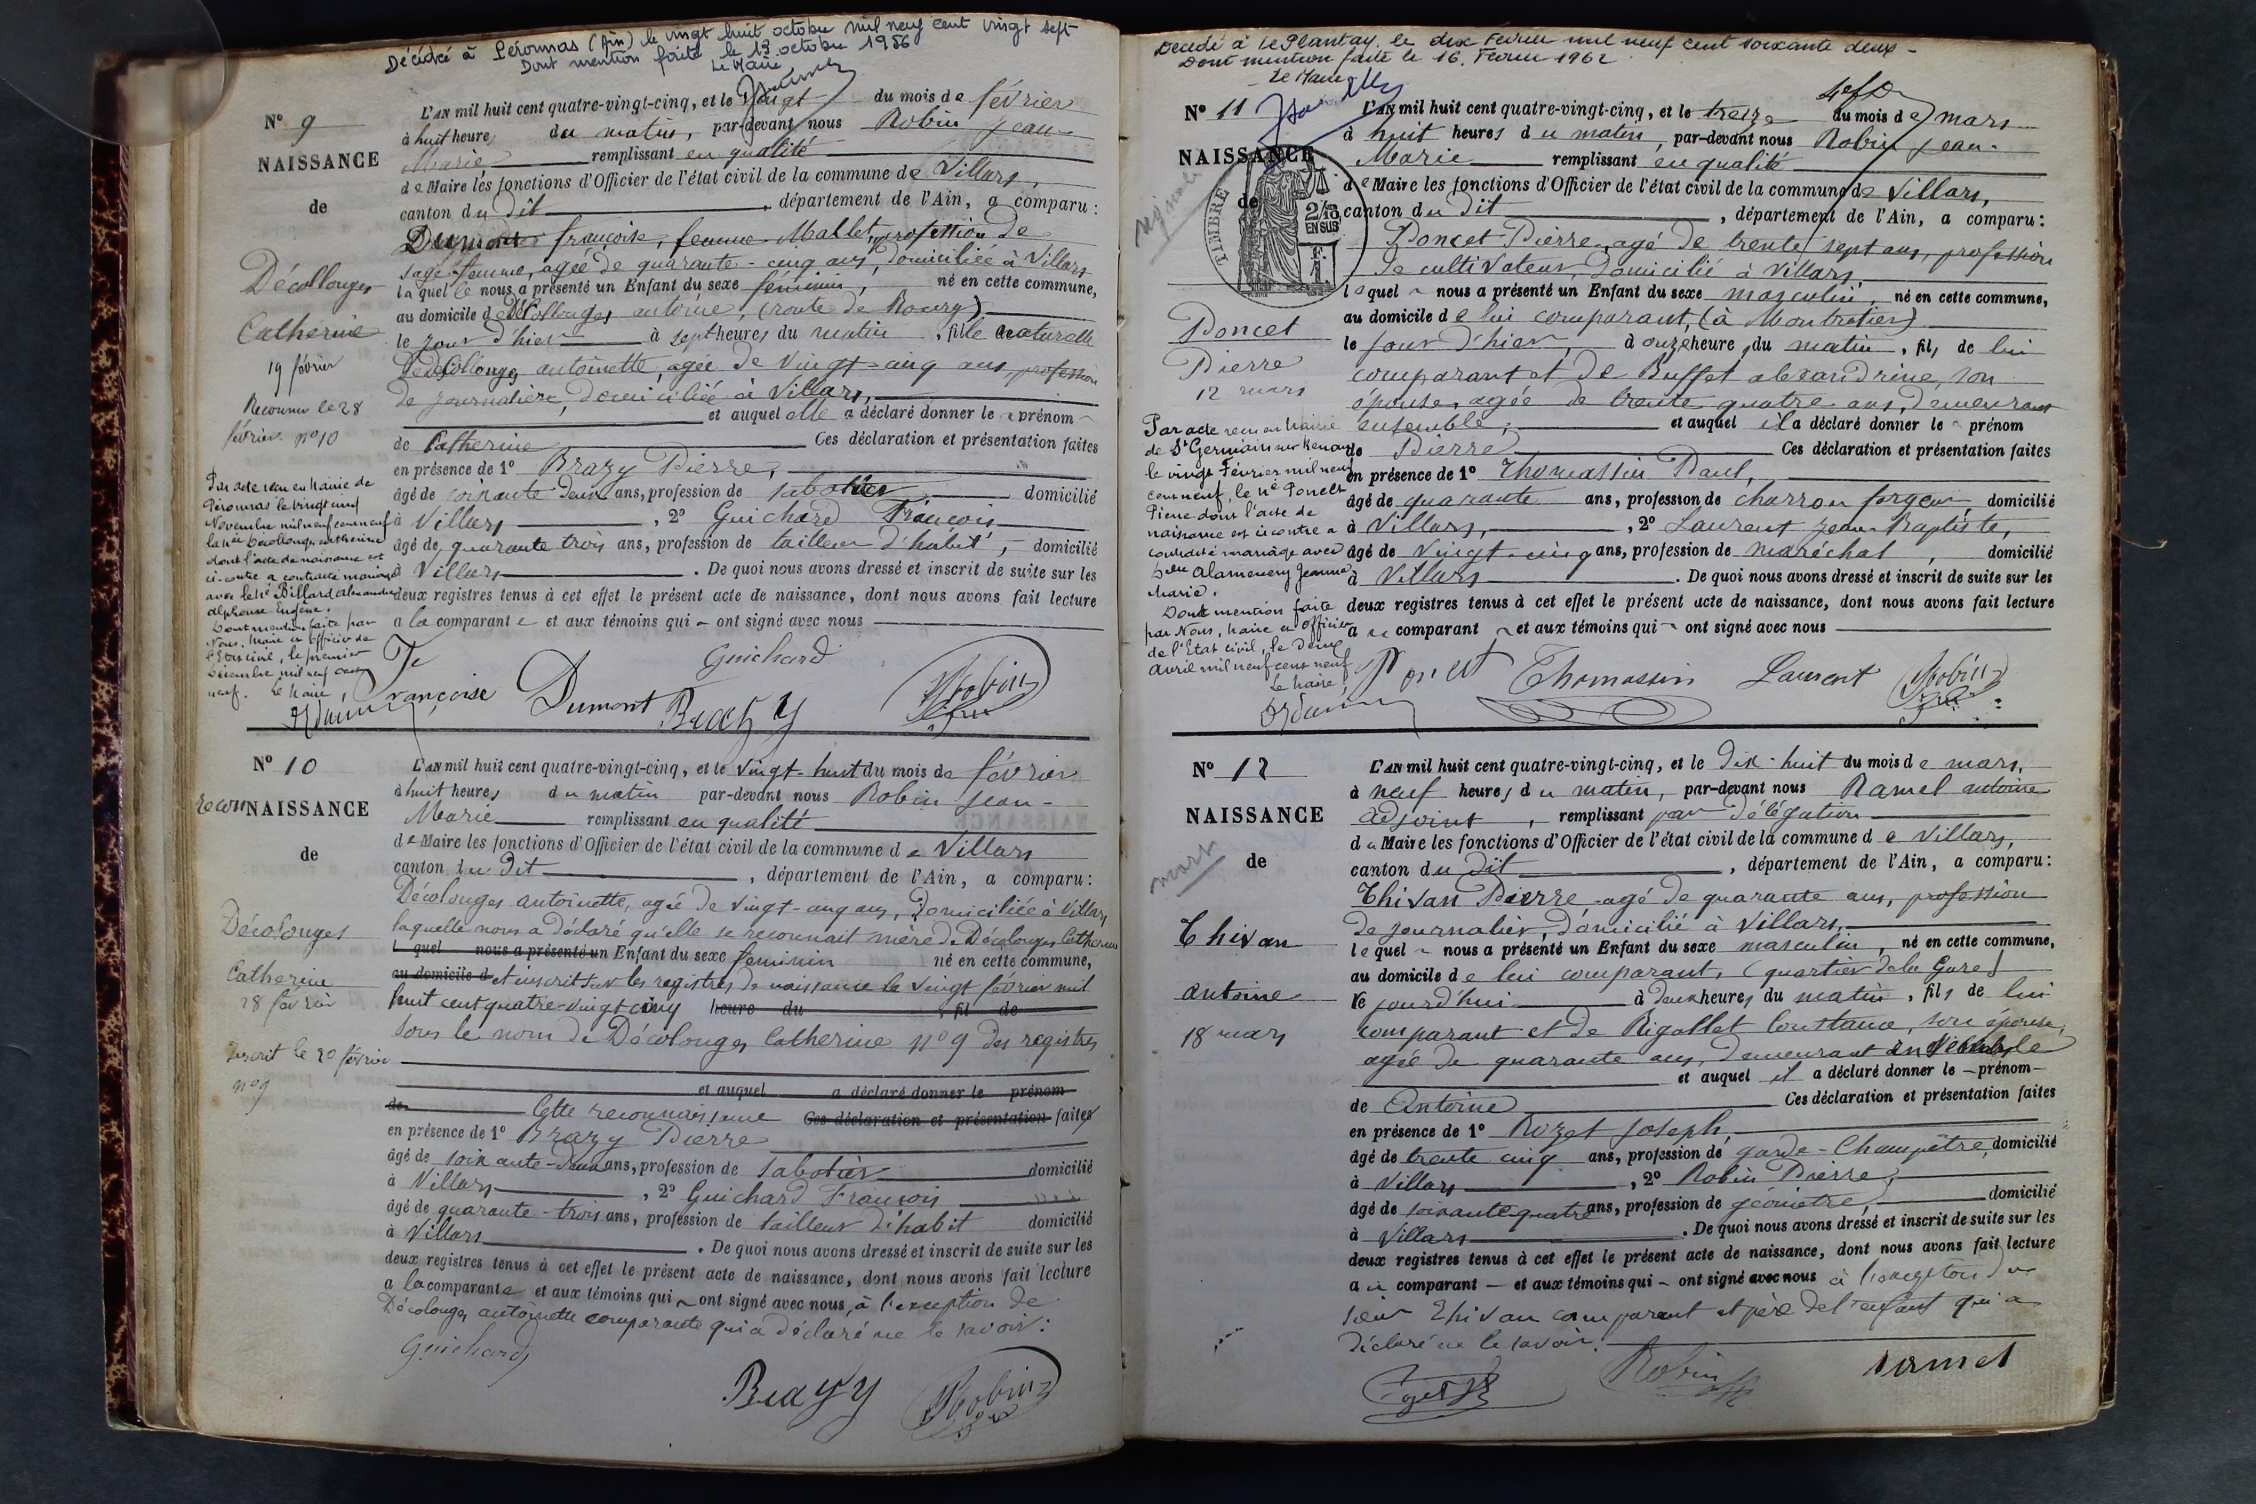 Décédée à Péronnas (Ain) le vingt huit octobre mil neuf cent vingt sept
Dont mention faite le 13 octobre 1956
Le Maire
N° 9
NAISSANCE
de
Décollonges
Catherine
19 février
Reconnue le 28
février n° 10
Par acte reçu en mairie de
Péronnas le vingt cinq
Novembre mil neuf cent neuf
la née Décollonges Catherine
dont l'acte de naissance est
ci-contre a contracté mariage
avec le né Billard Alexandre
Alphonse Eugène.
Dont mention faite par
Nous, Maire et officier de
l'Etat civil, le premier
Décembre mil neuf cent
neuf. Le Maire,
L'AN mil huit cent quatre-vingt-cinq, et le Vingt du mois de février
à huit heures du matin, par-devant nous Robin Jean-
Marie remplissant en qualité
de Maire les fonctions d'Officier de l'état civil de la commune de Villars,
canton du dit, département de l'Ain, a comparu:
Dumont françoise, femme Mallet, profession de
sage-femme, agée de quarante-cinq ans, domiciliée à Villars
laquelle nous a présenté un Enfant du sexe féminin, né en cette commune,
au domicile de Décollonges antoine, (route de Bourg)
le jour d'hier à sept heures du matin, fille naturelle
de Décollonges antoinette, agée de vingt-cinq ans, profession
de journalière, domiciliée à Villars,
et auquel elle a déclaré donner le prénom
de Catherine Ces déclaration et présentation faites
en présence de 1° Brazy Pierre,
âgé de soixante-deux ans, profession de sabotier domicilié
à Villars, 2° Guichard François
âgé de quarante trois ans, profession de tailleur d'habit, domicilié
à Villars. De quoi nous avons dressé et inscrit de suite sur les
deux registres tenus à cet effet le présent acte de naissance, dont nous avons fait lecture
a la comparante et aux témoins qui ont signé avec nous
Guichard
Fe
Françoise Dumont Brazy Robin
N° 10
recon NAISSANCE
de
Décolonges
Catherine
28 février
Inscrit le 20 février
n° 9
L'AN mil huit cent quatre-vingt-cinq, et le vingt-huit du mois de février
à huit heures du matin par-devant nous Robin Jean-
Marie remplissant en qualité
de Maire les fonctions d'Officier de l'état civil de la commune de Villars
canton du dit, département de l'Ain, a comparu:
Décolonges antoinette, agée de vingt-cinq ans, domiciliée à Villars,
laquelle nous a déclaré qu'elle se reconnait mère de Décolonges Catherine
l quel nous a présenté un Enfant du sexe féminin né en cette commune,
au domicile d et inscrit sur les registres de naissance le vingt février mil
huit cent quatre-vingt-cinq heure du fil de
sous le nom de Décolonges Catherine n° 9 des registres
et auquel a déclaré donner le prénom
de Cette reconnaissance Ces déclaration et présentation faites
en présence de 1° Brazy Pierre
âgé de soixante-deux ans, profession de sabotier domicilié
à Villars, 2° Guichard François
âgé de quarante-trois ans, profession de tailleur d'habit domicilié
à Villars. De quoi nous avons dressé et inscrit de suite sur les
deux registres tenus à cet effet le présent acte de naissance, dont nous avons fait lecture
a la comparante et aux témoins qui ont signé avec nous, à l'exception de
Décolonges antoinette comparante qui a déclaré ne le savoir:
Guichard
Brazy Robin
Décédé à Le Plantay le dix Fevrier mil neuf cent soixante deux
Dont mention faite le 16. Fevrier 1962
Le Maire
N° 11
NAISSANCE
de
TIMBRE
2/10
EN SUS
Poncet
Pierre
12 mars
Par acte reçu en mairie
de St Germain sur Renon
le vingt Février mil neuf
cent neuf, le né Poncet
Pierre dont l'acte de
naissance est ci contre a
contracté mariage avec
Alamercery Jeanne
Marie.
Dont mention faite
par Nous, Maire et officier
de l'Etat civil, le Deux
Avril mil neuf cent neuf
Le Maire,
L'AN mil huit cent quatre-vingt-cinq, et le treize du mois de mars
à huit heures du matin, par-devant nous Robin Jean-
Marie remplissant en qualité
de Maire les fonctions d'Officier de l'état civil de la commune de Villars,
canton du dit, département de l'Ain, a comparu:
Poncet Pierre, agé de trente sept ans, profession
de cultivateur, domicilié à Villars
lequel nous a présenté un Enfant du sexe masculin, né en cette commune,
au domicile de lui comparant, (à Montratier)
le jour d'hier, à onze heures du matin, fils de lui
comparant et de Buffet alexandrine, son
épouse, agée de trente quatre ans, demeurant
ensemble, et auquel il a déclaré donner le prénom
de Pierre Ces déclaration et présentation faites
en présence de 1° Thomassin Paul,
âgé de quarante ans, profession de charron forgeur, domicilié
à Villars, 2° Laurent Jean-Baptiste,
âgé de vingt-cinq ans, profession de maréchal, domicilié
à Villars. De quoi nous avons dressé et inscrit de suite sur les
deux registres tenus à cet effet le présent acte de naissance, dont nous avons fait lecture
a u comparant et aux témoins qui ont signé avec nous
Poncet Thomassin Laurent Robin
N° 12
NAISSANCE
de
mort
Thivan
antoine
18 mars
L'AN mil huit cent quatre-vingt-cinq, et le dix-huit du mois de mars,
à neuf heures du matin, par-devant nous Ramel antoine
adjoint, remplissant par délégation
du Maire les fonctions d'Officier de l'état civil de la commune de Villars,
canton du dit, département de l'Ain, a comparu:
Thivan Pierre agé de quarante ans, profession
de journalier, domicilié à Villars,
lequel nous a présenté un Enfant du sexe masculin, né en cette commune,
au domicile de lui comparant, (quartier de la Gare)
ce jourd'hui à deux heures du matin, fils de lui
comparant et de Rigollet Constance, son épouse,
agée de quarante ans, demeurant ensemble
et auquel il a déclaré donner le prénom
de Antoine Ces déclaration et présentation faites
en présence de 1° Rozet Joseph,
âgé de trente cinq ans, profession de garde-Champêtre, domicilié
à Villars, 2° Robin Pierre,
âgé de soixante quatre ans, profession de géomètre, domicilié
à Villars. De quoi nous avons dressé et inscrit de suite sur les
deux registres tenus à cet effet le présent acte de naissance, dont nous avons fait lecture
a u comparant et aux témoins qui ont signé avec nous à l'exception du
sieur Thivan comparant et père de l'enfant qui a
déclaré ne le savoir.
Rozet Robin Ramel